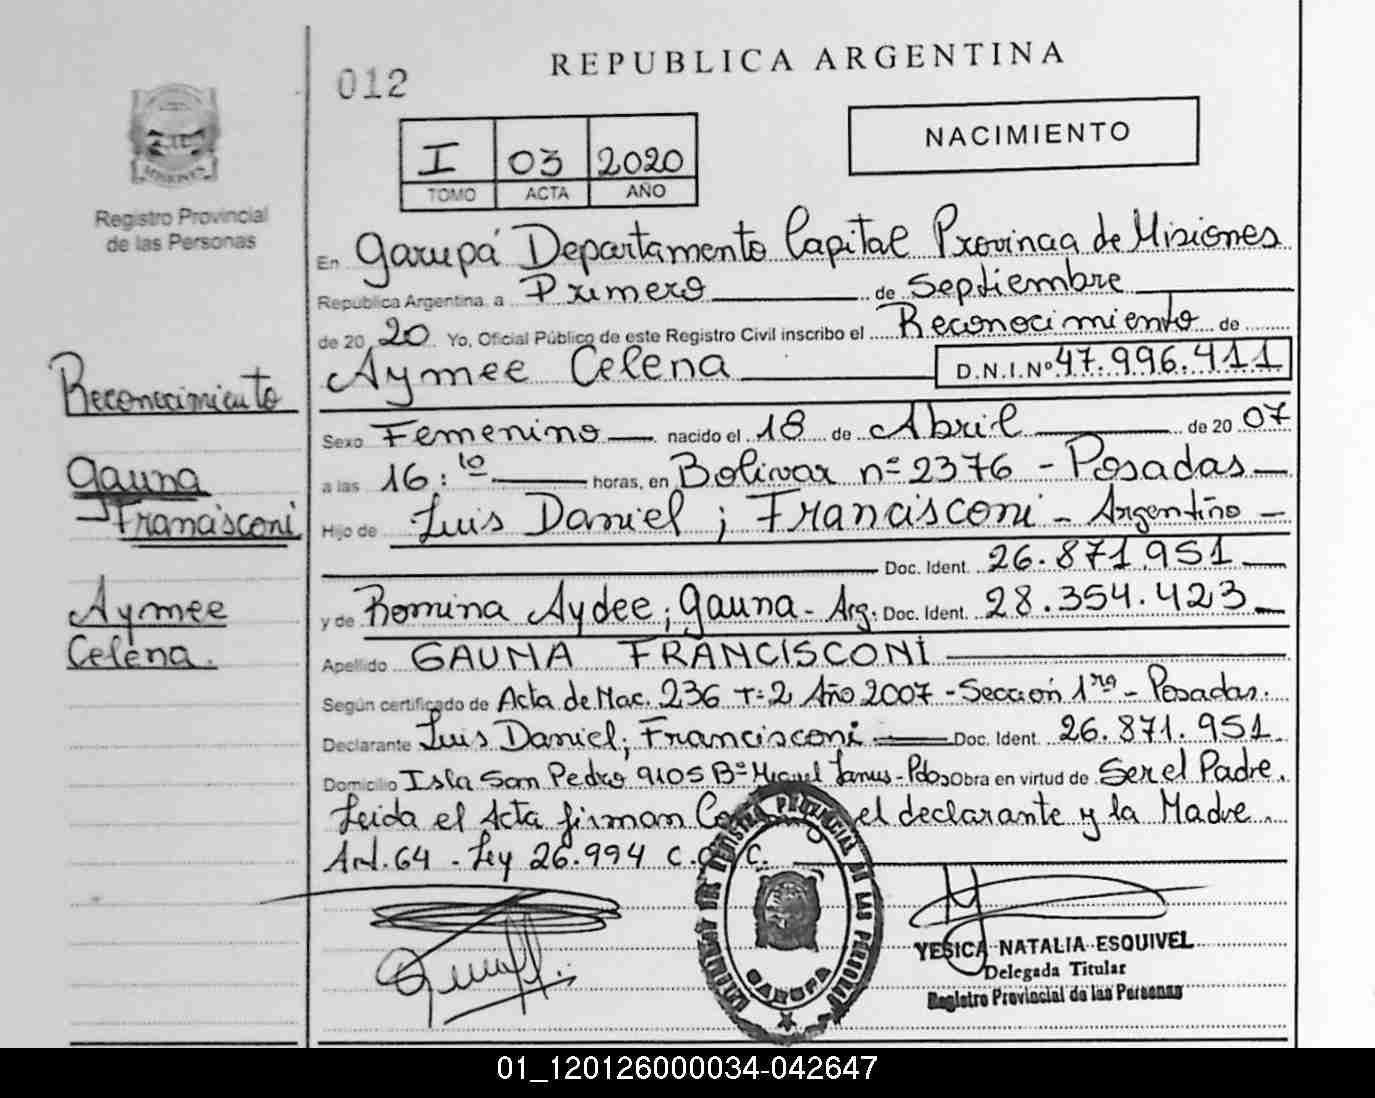 REPUBLICA ARGENTINA
012
NACIMIENTO
I 03 2020
TOMO ACTA AÑO
MISIONES
Registro Provincial
de las Personas
En Garupá Departamento Capital Provincia de Misiones
Republica Argentina. a Primero de Septiembre
de 20 20 Yo, Oficial Público de este Registro Civil inscribo el Reconocimiento de
Aymee Celena D.N.I.Nº 47.996.411
Reconocimiento
Sexo Femenino nacido el 18 de Abril de 20 07
a las 16:10 horas, en Bolivar nº 2376 - Posadas
Gauna
Francisconi
Hijo de Luis Daniel ; Francisconi - Argentino -
Doc. Ident. 26.871.951
y de Romina Aydee ; Gauna - Arg. Doc. Ident. 28.354.423
Aymee
Celena.
Apellido GAUNA FRANCISCONI
Según certificado de Acta de Nac. 236 T=2 Año 2007 - Sección 1ra - Posadas.
Declarante Luis Daniel; Francisconi Doc. Ident. 26.871.951
Domicilio Isla San Pedro 9105 Bº Miguel Lanus - Pdas Obra en virtud de Ser el Padre.
Leida el Acta firman el declarante y la Madre.
Art. 64 - Ley 26.994 C.C.
REGISTRO PROVINCIAL DE LAS PERSONAS
GARUPA
YESICA NATALIA ESQUIVEL
Delegada Titular
Registro Provincial de las Personas
01_120126000034-042647